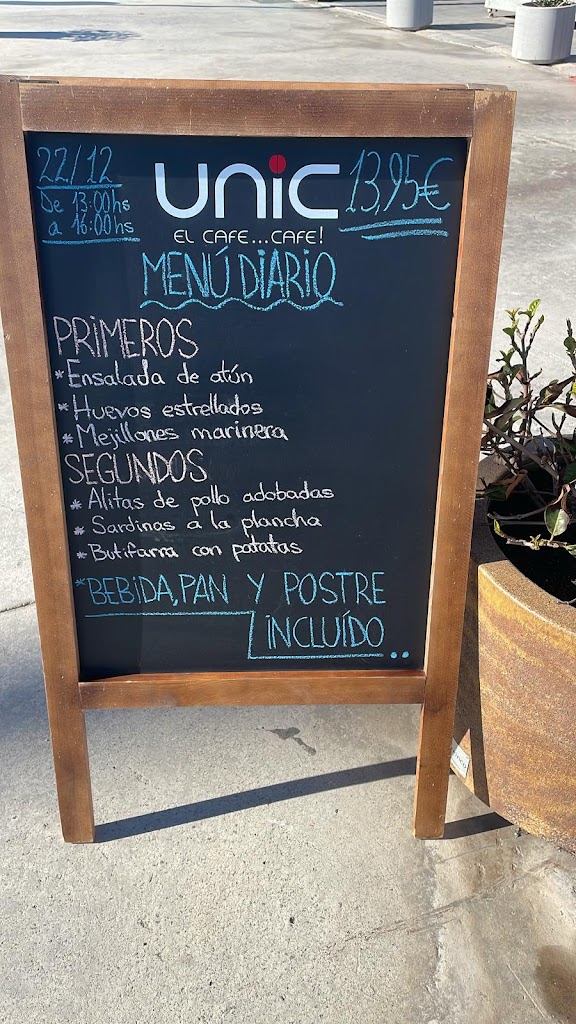 22/12
De 13:00hs
a 16:00hs
UNiC
13,95€
EL CAFE...CAFE!
MENÚ DIARIO
PRIMEROS
*Ensalada de atún
*Huevos estrellados
*Mejillones marinera
SEGUNDOS
*Alitas de pollo adobadas
*Sardinas a la plancha
*Butifarra con patatas
*BEBIDA, PAN Y POSTRE
INCLUÍDO..